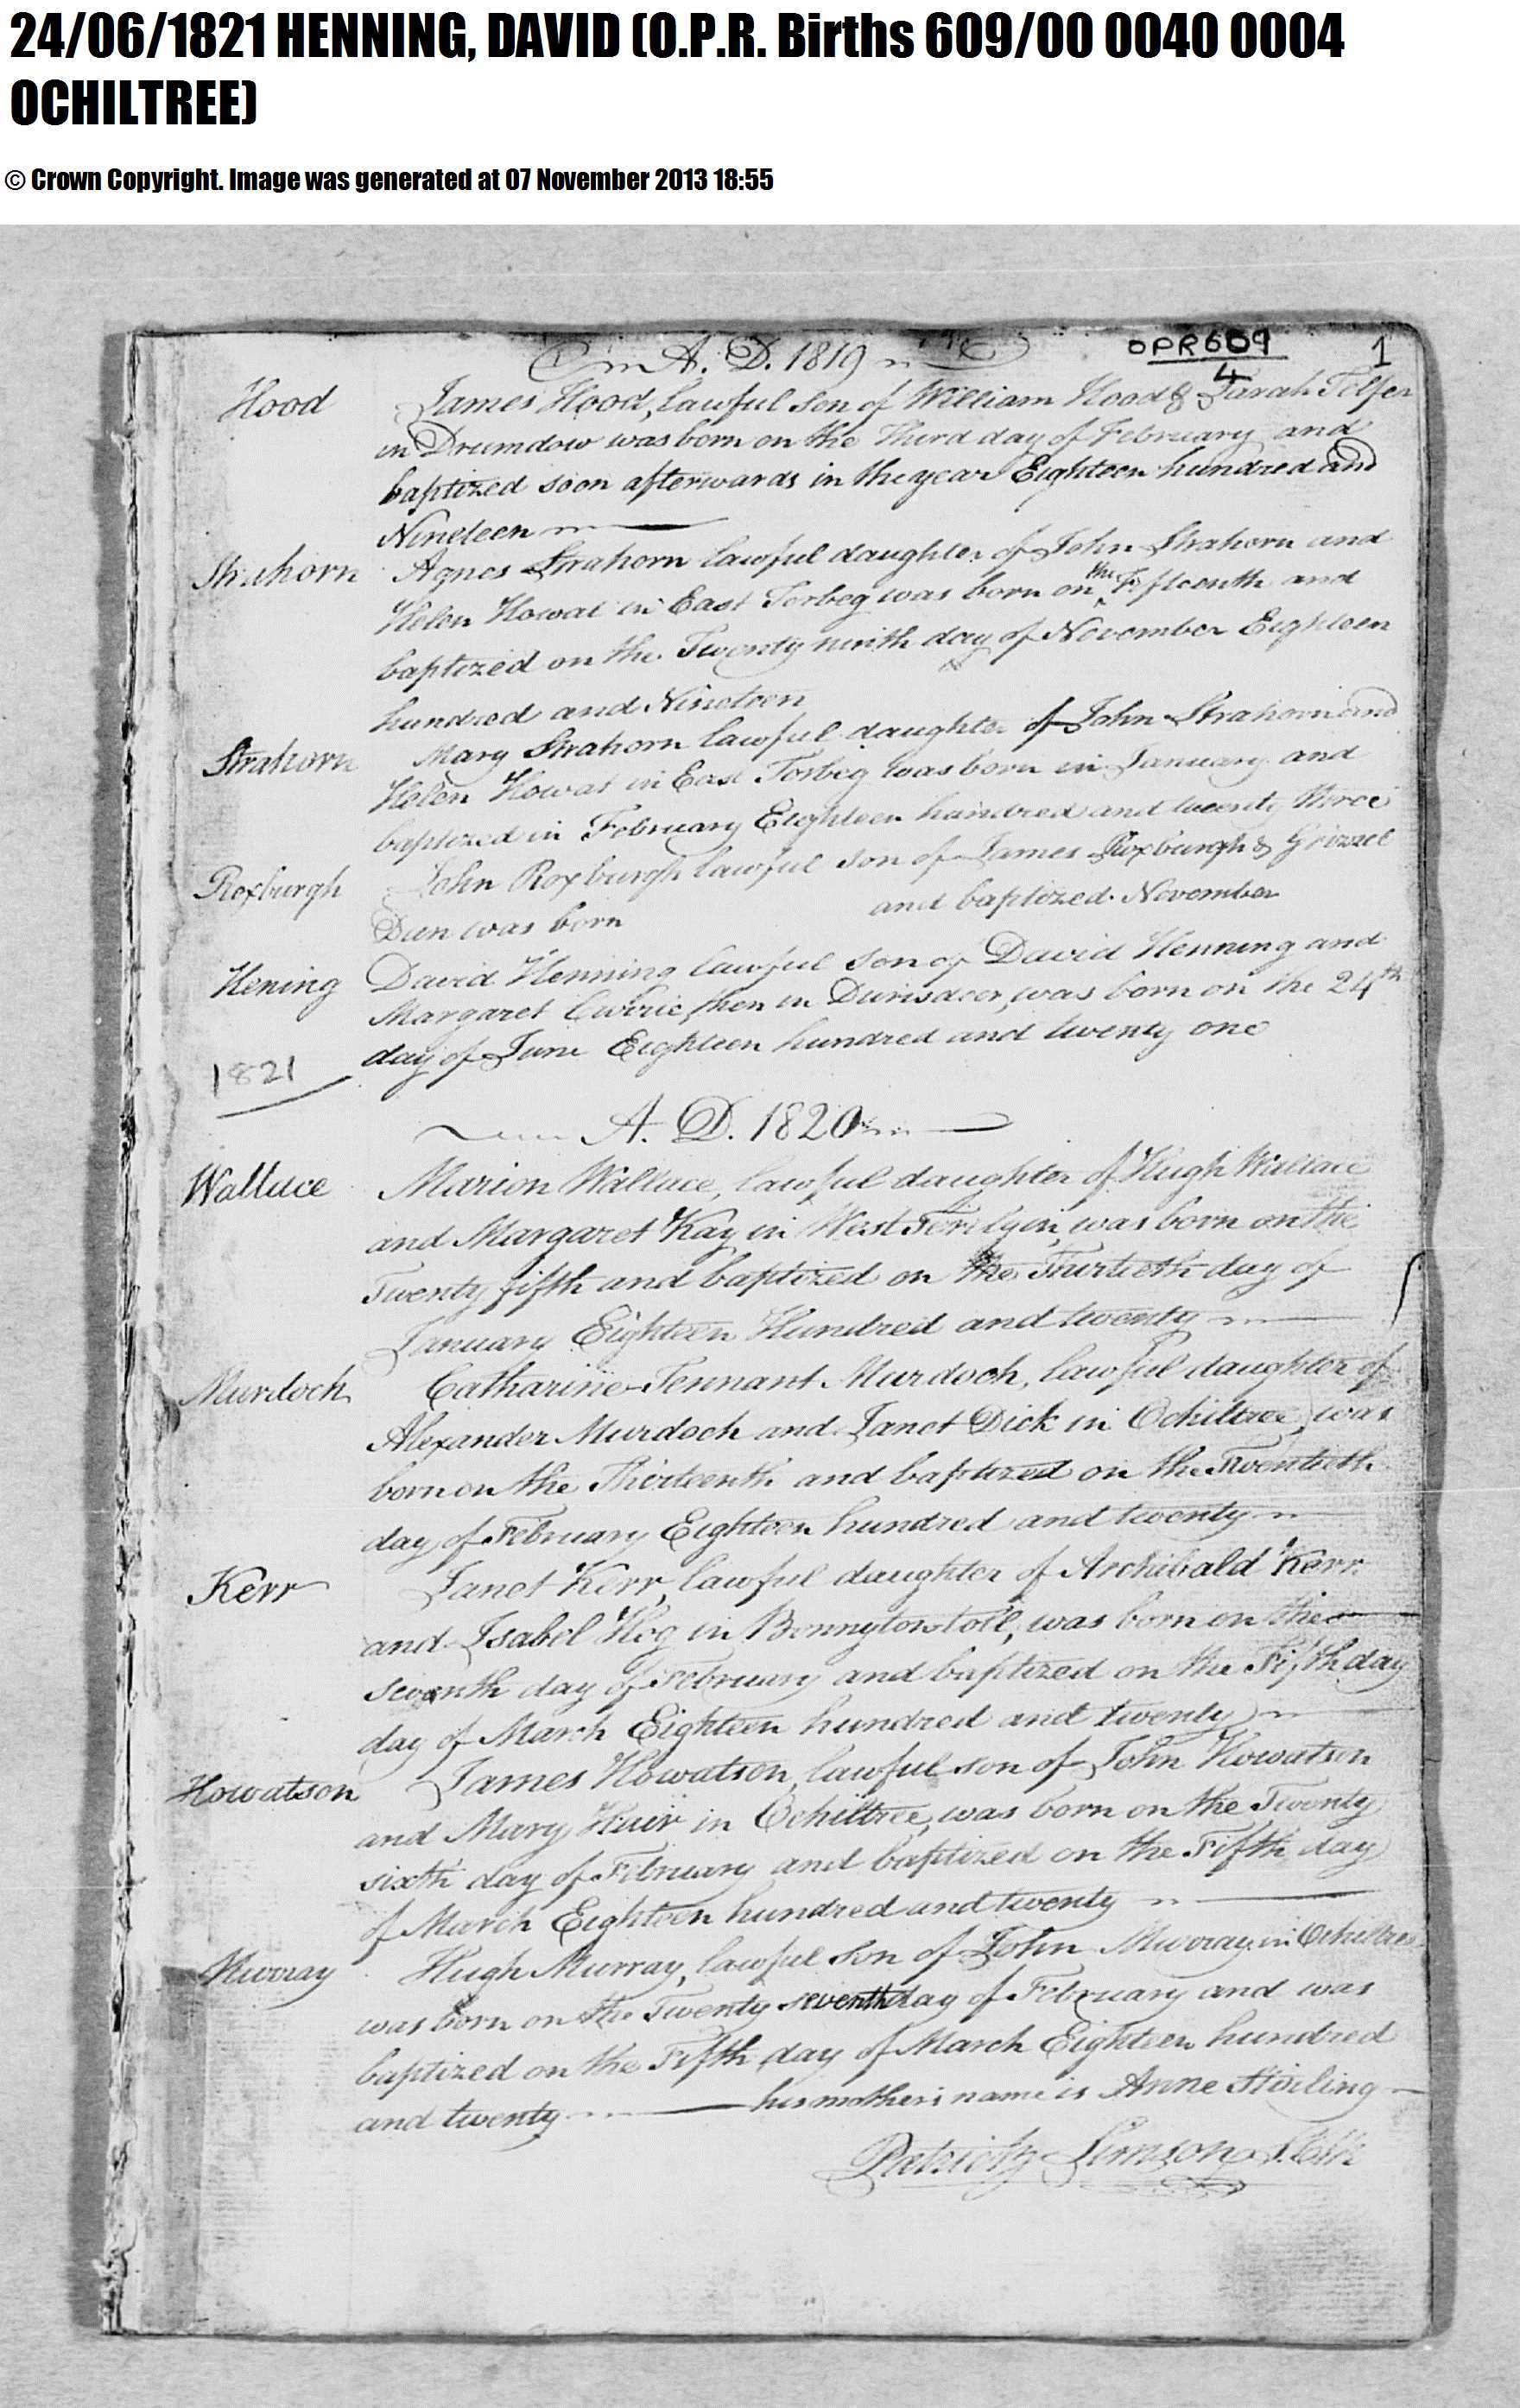 24/06/1821 HENNING, DAVID (O.P.R. Births 609/00 0040 0004
OCHILTREE)
© Crown Copyright. Image was generated at 07 November 2013 18:55
A. D. 1819
OPR 609
4
1
Hood
James Hood, lawful son of William Hood & Sarah Telfer
in Drumdow was born on the Third day of February and
baptized soon afterwards in the year Eighteen hundred and
Nineteen
Strahorn
Agnes Strahorn lawful daughter of John Strahorn and
Helen Howat in East Torbeg was born on the Fifteenth and
baptized on the Twenty ninth day of November Eighteen
hundred and Nineteen
Strahorn
Mary Strahorn lawful daughter of John Strahorn and
Helen Howat in East Torbeg was born in January and
baptized in February Eighteen hundred and twenty three
Roxburgh
John Roxburgh lawful son of James Roxburgh & Grizzel
Dun was born and baptized November
Hening
David Henning lawful son of David Henning and
Margaret Currie, then in Durisdeer, was born on the 24th
day of June Eighteen hundred and twenty one
1821
A. D. 1820
Wallace
Marion Wallace, lawful daughter of Hugh Wallace
and Margaret Kay in West was born on the
Twenty fifth and baptized on the Thirtieth day of
January Eighteen Hundred and twenty
Murdoch
Catharine Tennant Murdoch, lawful daughter of
Alexander Murdoch and Janet Dick in Ochiltree, was
born on the Thirteenth and baptized on the Twentieth
day of February Eighteen hundred and twenty
Kerr
Janet Kerr, lawful daughter of Archibald Kerr
and Isabel Hog in Bonnytontoll, was born on the
seventh day of February and baptized on the Fifth day
day of March Eighteen hundred and twenty
Howatson
James Howatson, lawful son of John Howatson
and Mary in Ochiltree, was born on the Twenty
sixth day of February and baptized on the Fifth day
of March Eighteen hundred and twenty
Murray
Hugh Murray, lawful son of John Murray in Ochiltree
was born on the Twenty seventh day of February and was
baptized on the Fifth day of March Eighteen hundred
and twenty his mother's name is Anne Stirling
Patrick Simson S. Clk